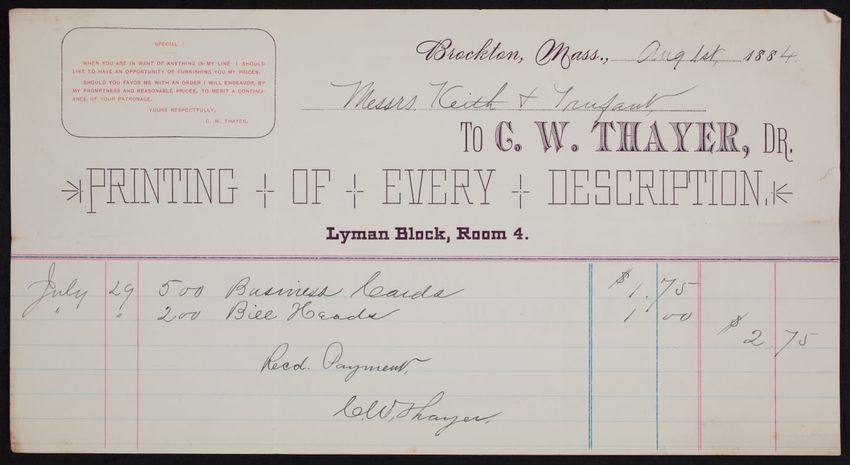 SPECIAL!
WHEN YOU ARE IN WANT OF ANYTHING IN MY LINE I SHOULD
LIKE TO HAVE AN OPPORTUNITY OF FURNISHING YOU MY PRICES.
SHOULD YOU FAVOR ME WITH AN ORDER I WILL ENDEAVOR, BY
MY PROMPTNESS AND REASONABLE PRICES, TO MERIT A CONTINU-
ANCE OF YOUR PATRONAGE.
YOURS RESPECTFULLY,
C. W. THAYER.
Brockton, Mass., Aug 1st, 1884
Messrs. Keith & Trufant,
TO C. W. THAYER, DR.
PRINTING OF EVERY DESCRIPTION.
Lyman Block, Room 4.
July 29 500 Business Cards $1.75
" " 200 Bill Heads 1 00
$2.75
Recd. Payment,
C.W. Thayer.